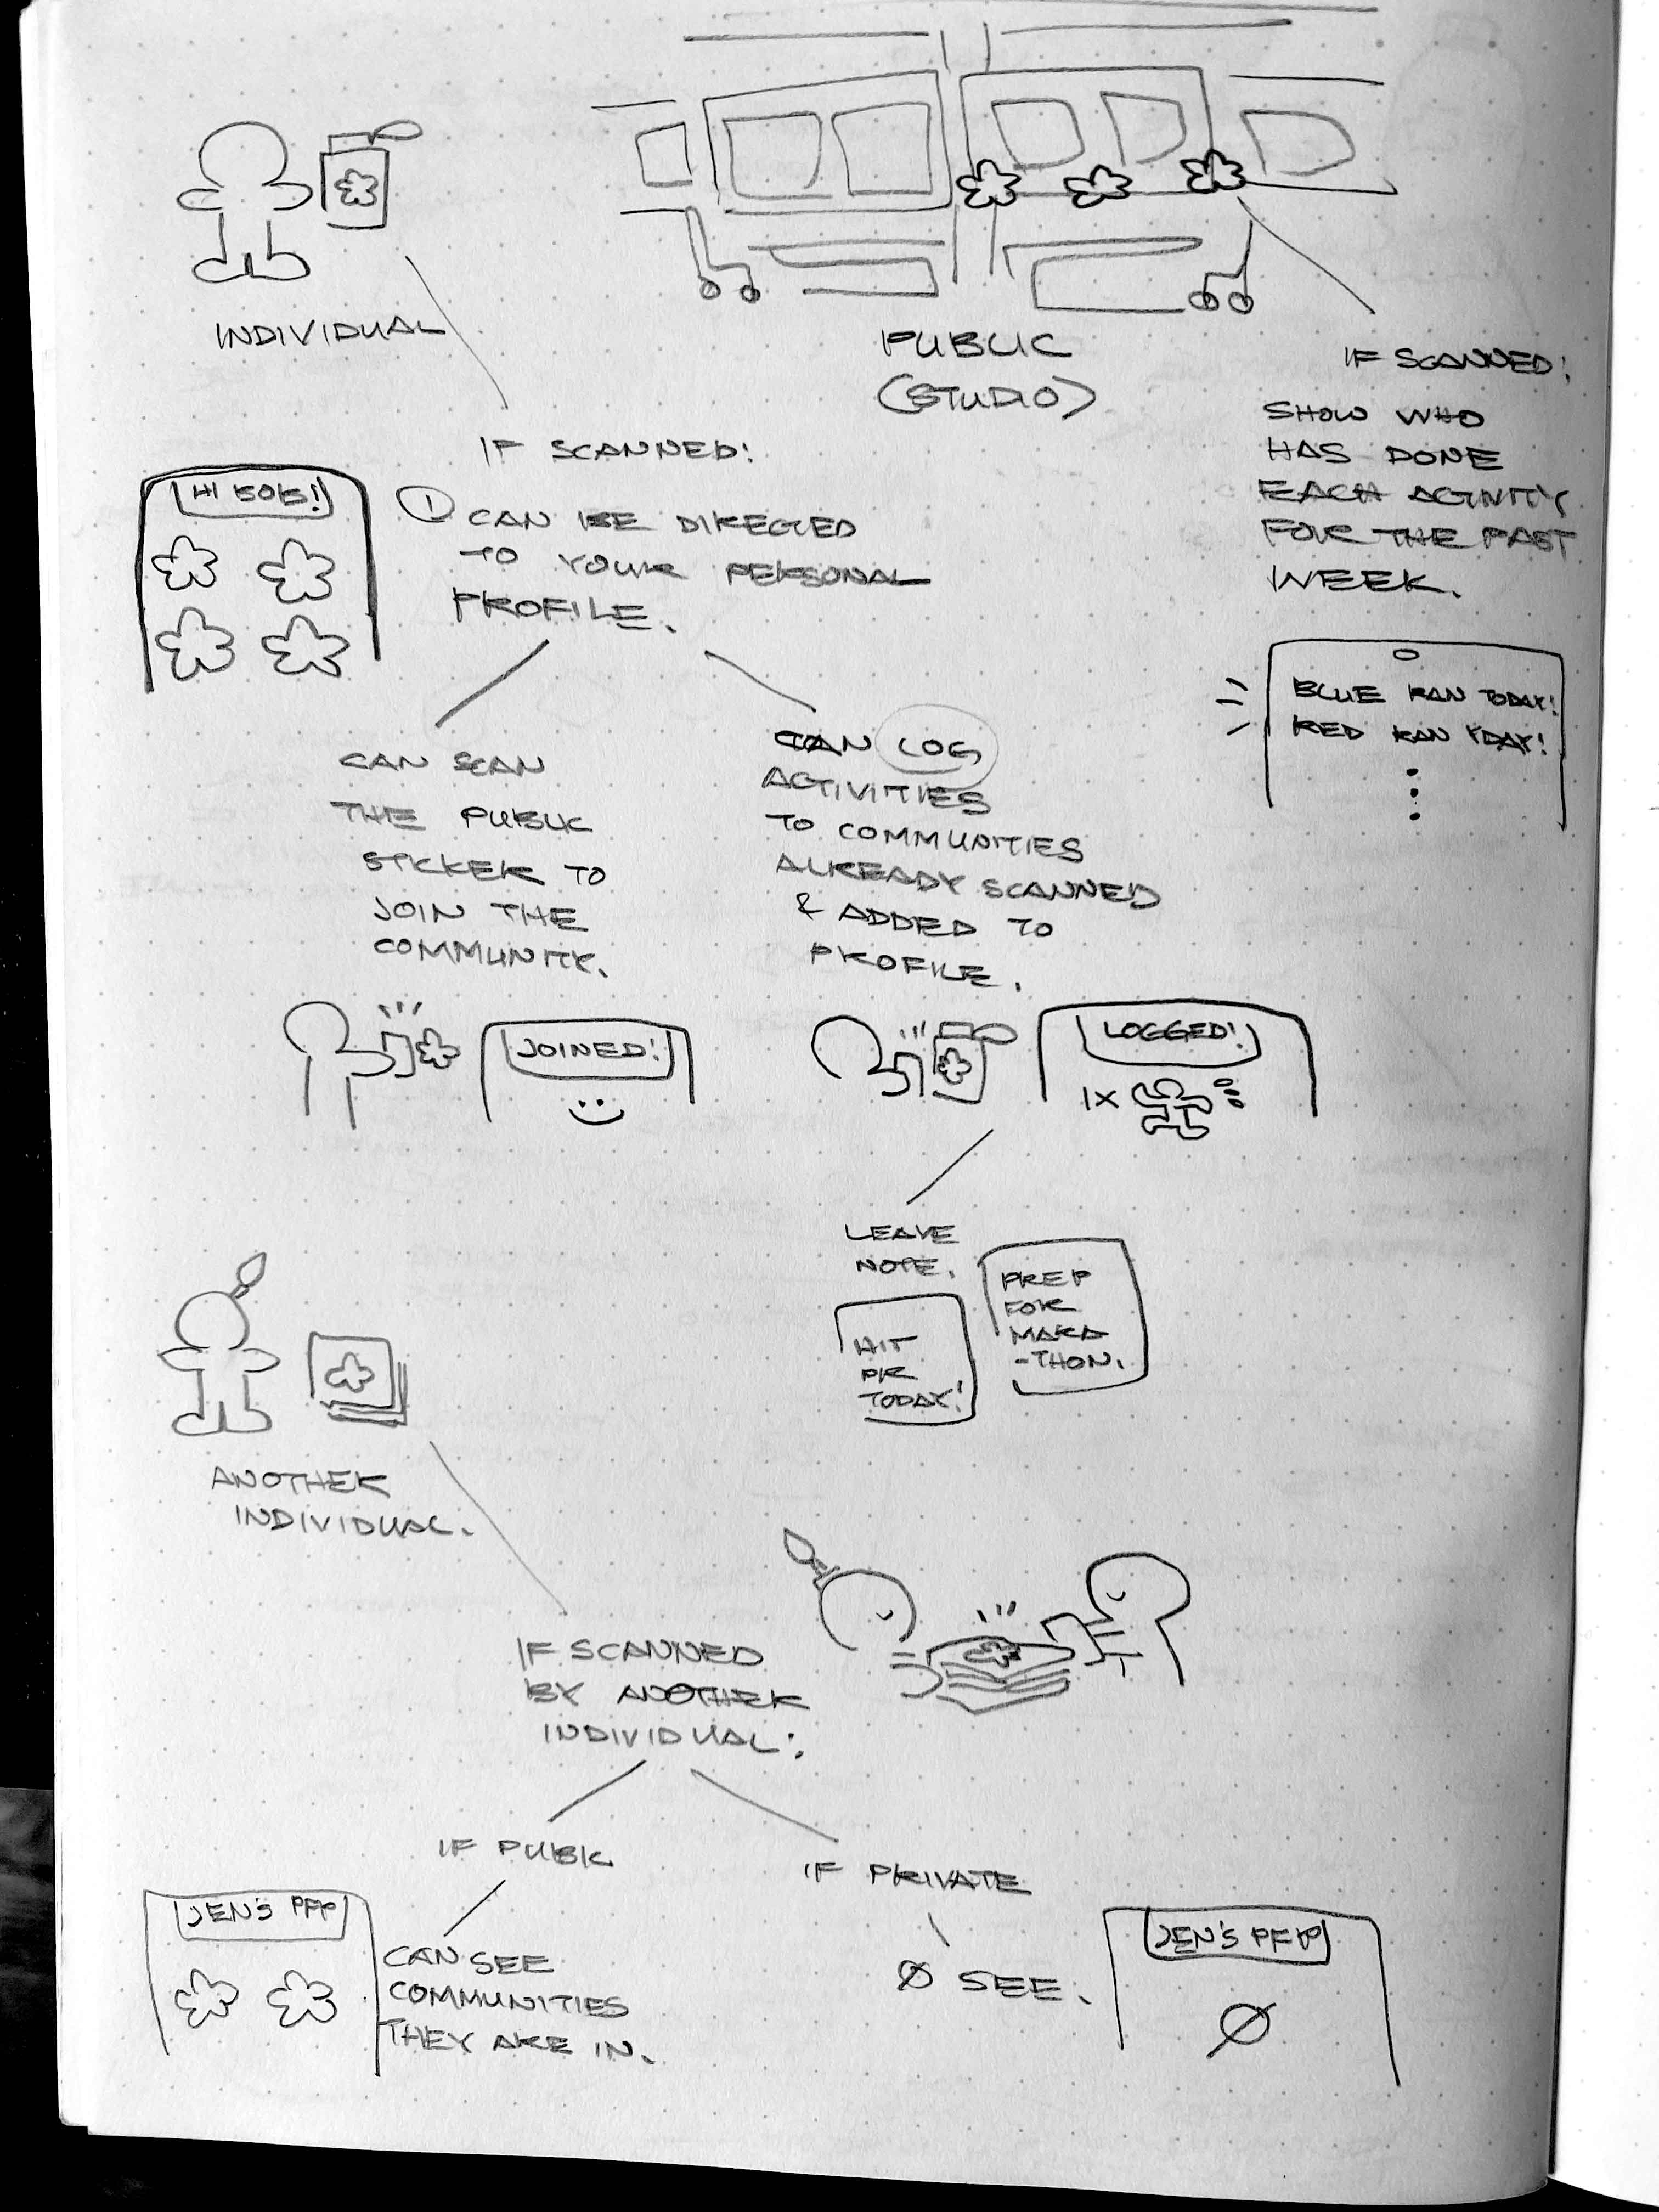 INDIVIDUAL
PUBLIC
(STUDIO)
IF SCANNED:
SHOW WHO
HAS DONE
EACH ACTIVITY
FOR THE PAST
WEEK.
BLUE RAN TODAY!
RED RAN YDAY!
IF SCANNED:
HI BOB!
① CAN BE DIRECTED
TO YOUR PERSONAL
PROFILE.
CAN SCAN
THE PUBLIC
STICKER TO
JOIN THE
COMMUNITY.
CAN LOG
ACTIVITIES
TO COMMUNITIES
ALREADY SCANNED
& ADDED TO
PROFILE.
JOINED!
LOGGED!
1X
LEAVE
NOTE.
HIT
PR
TODAY!
PREP
FOR
MARA
-THON.
ANOTHER
INDIVIDUAL.
IF SCANNED
BY ANOTHER
INDIVIDUAL:
IF PUBLIC
IF PRIVATE
JEN'S PFP
CAN SEE
COMMUNITIES
THEY ARE IN.
Ø SEE.
JEN'S PFP
Ø